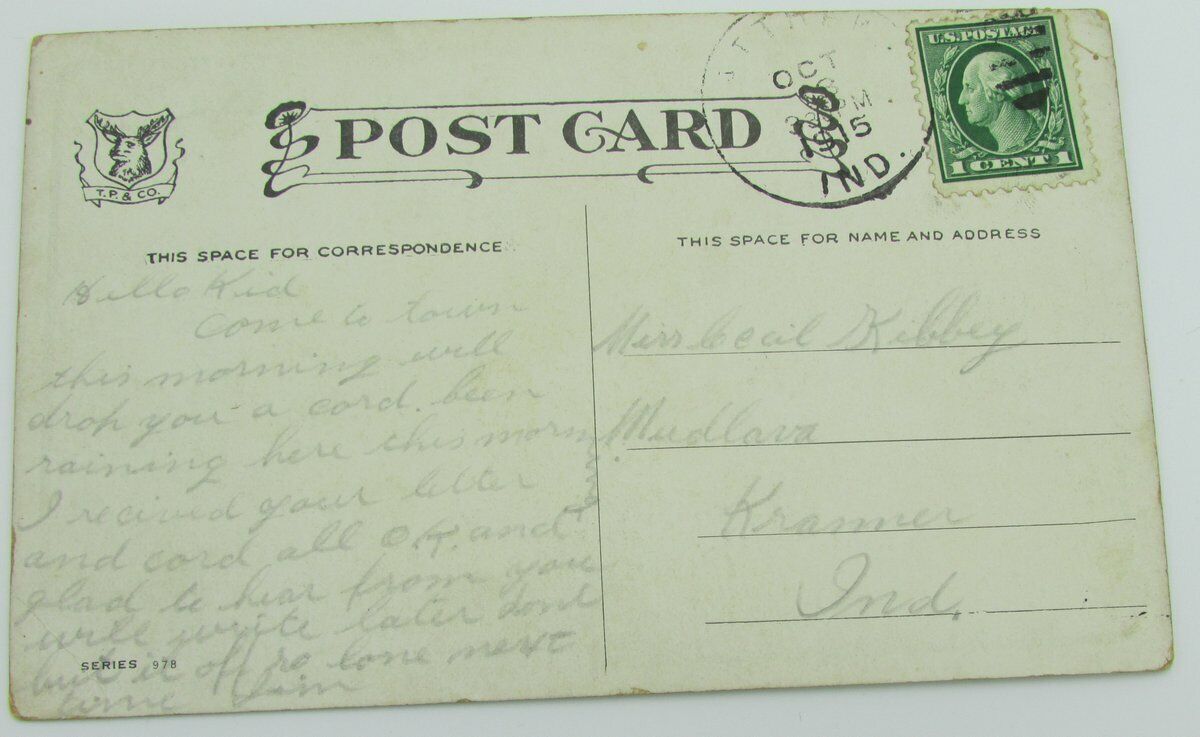 OCT
15
IND.
U.S. POSTAGE
1 CENT 1
POST CARD
T.P. & CO.
THIS SPACE FOR CORRESPONDENCE
THIS SPACE FOR NAME AND ADDRESS
Hello Kid
come to town
this morning will
drop you a cord. been
raining here this morn
I recived your letter
and cord all O.K. and
glad to hear from you
will write later dont
put it off so lone next
time
Miss Cecil Kibbey
Mudlava
Kramer
Ind.
SERIES 978